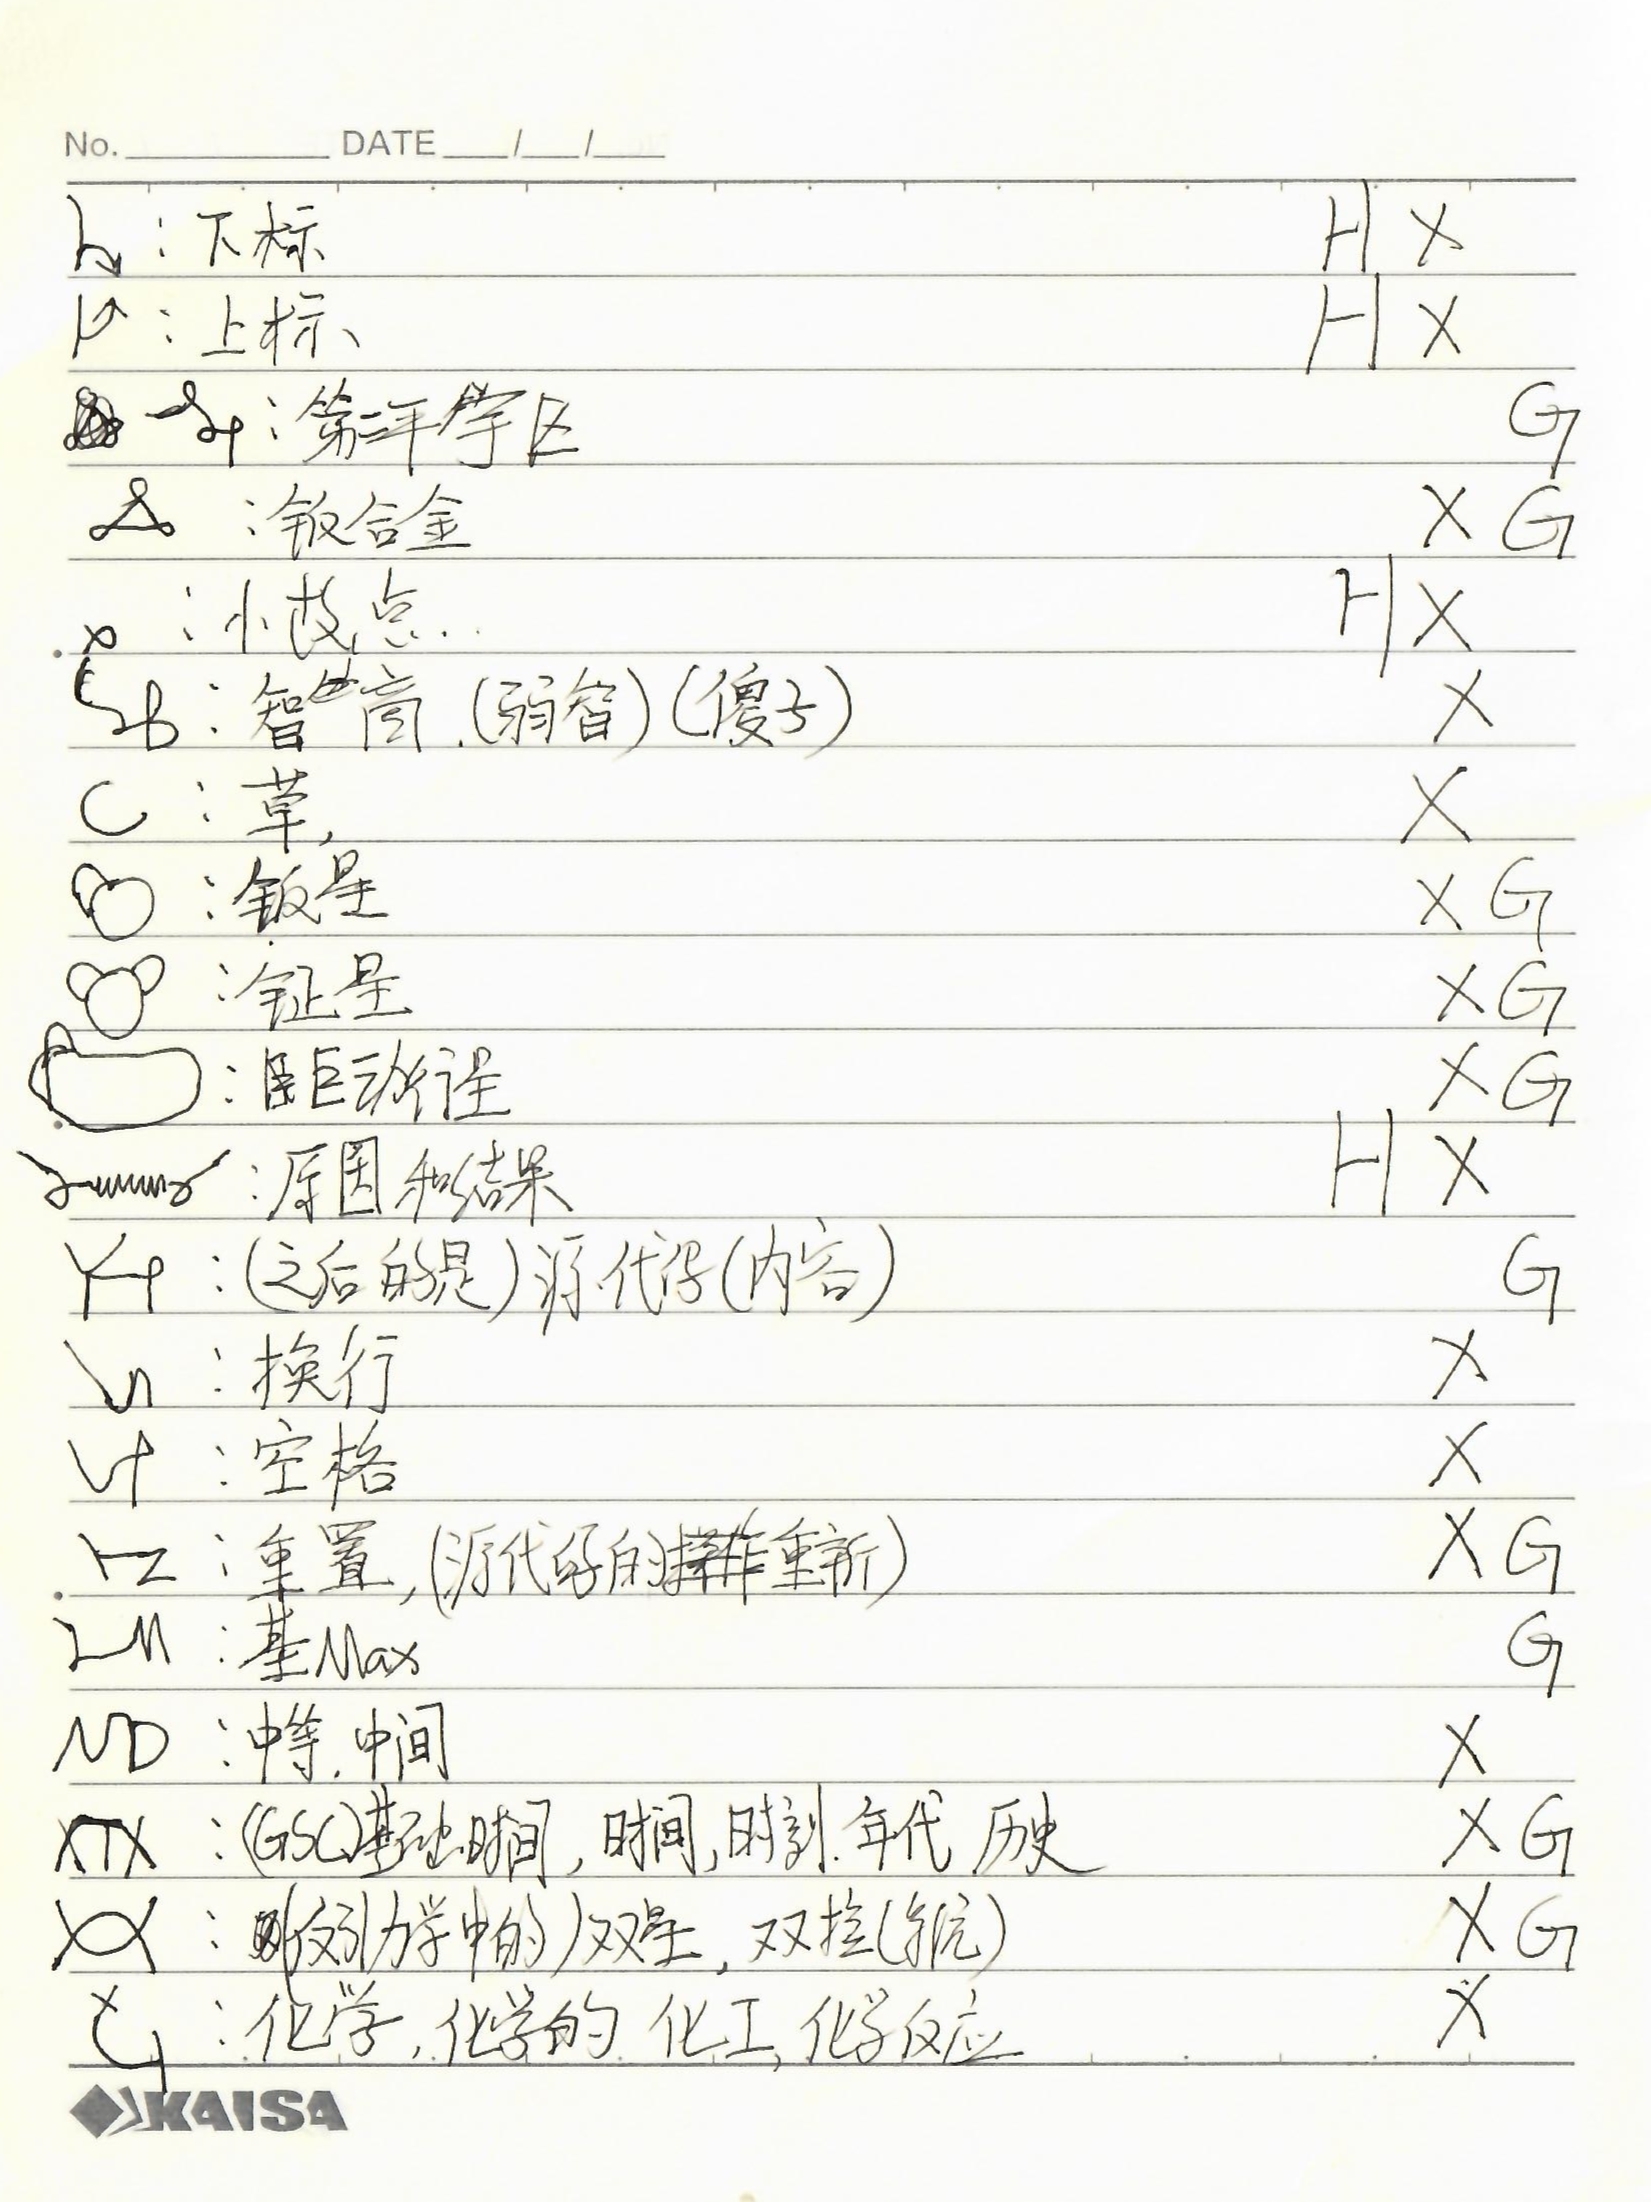 No. DATE / /
: 下标 H X
: 上标 H X
: 第 学区 G
: 钣合金 X G
: 小故点.. H X
: 智商.(弱智)(傻子) X
C : 草, X
: 钣星 X G
: 钲星 X G
: 巨动行星 X G
: 原因和结果 H X
: (之后的是)源代码(内容) G
: 换行 X
: 空格 X
: 重置,(源代码的 重新) X G
: 基Max G
ND : 中等.中间 X
XTX : (GSC)基础时间,时间,时刻.年代 历史 X G
: 引力学中的)双星,双 X G
: 化学,化学的 化工,化学反应 X
KAISA